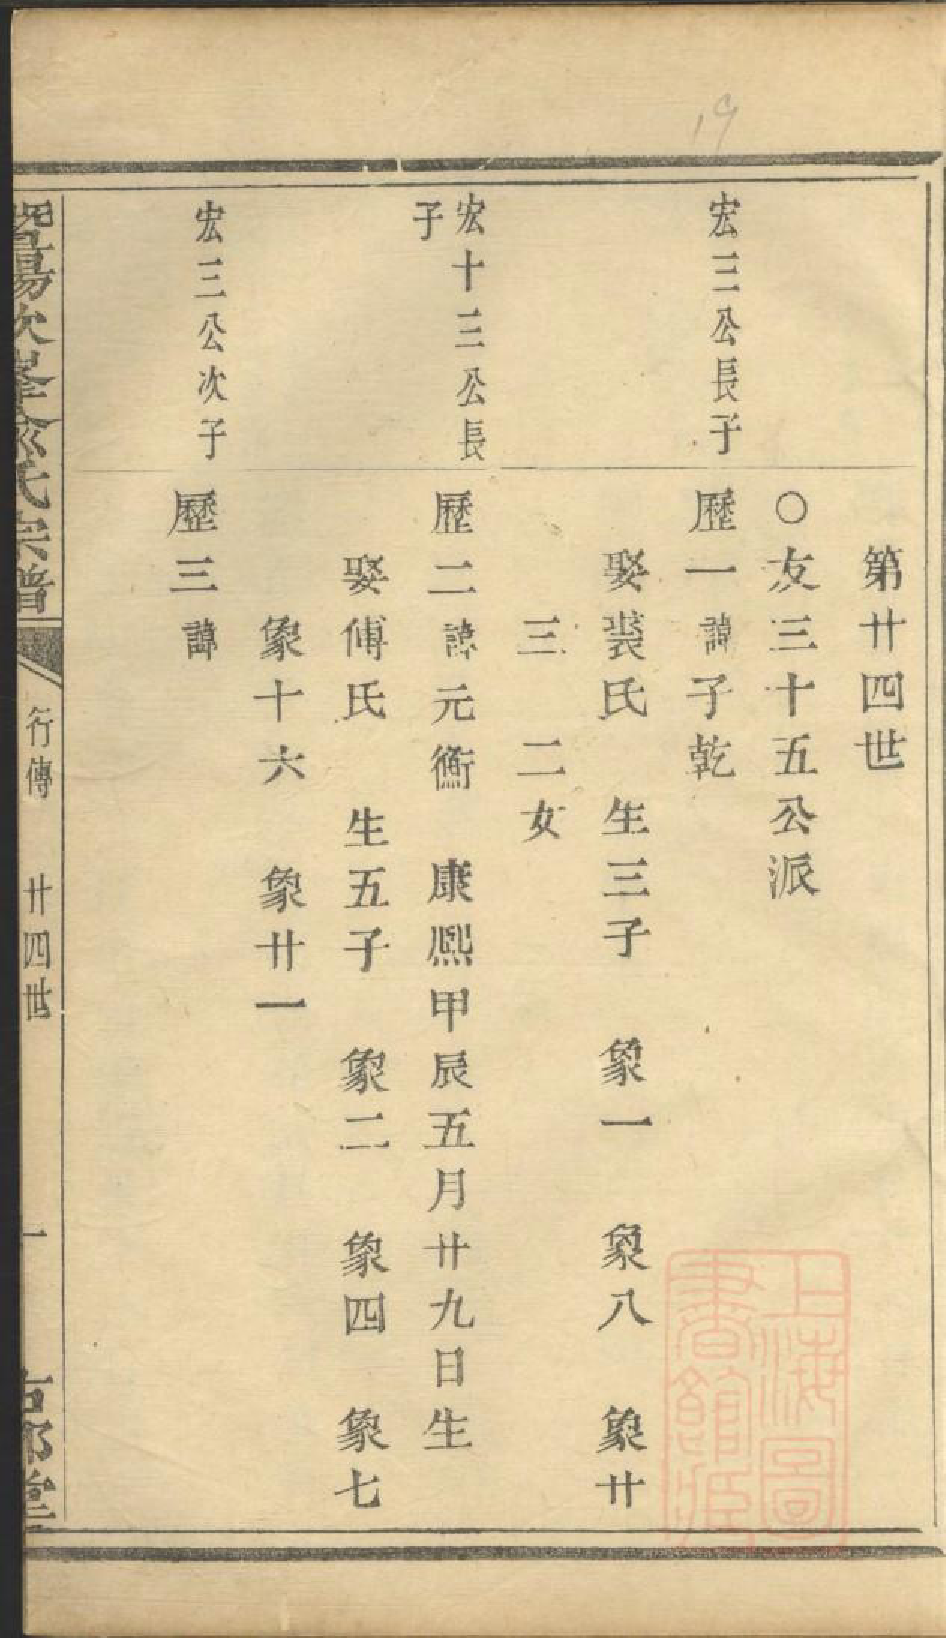 19
第廿四世
○友三十五公派
宏三公長子
歷一諱子乾
娶裘氏 生三子 象一 象八 象廿
三 二女
宏十三公長
子
歷二諱元衡 康熙甲辰五月廿九日生
娶傅氏 生五子 象二 象四 象七
象十六 象廿一
宏三公次子
歷三諱
氏宗譜
行傳 廿四世 一
堂
上海圖
書館藏